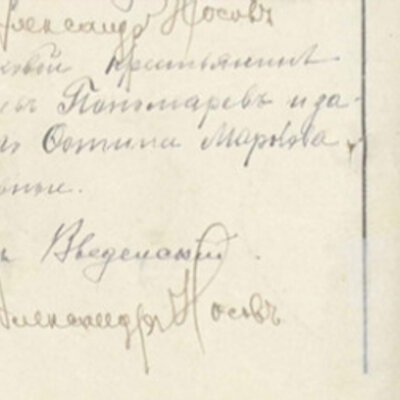 Александръ Носовъ
ковой крестьянинъ
Пономаревъ и за
Фотина Маркова
Введенскій.
Александръ Носовъ